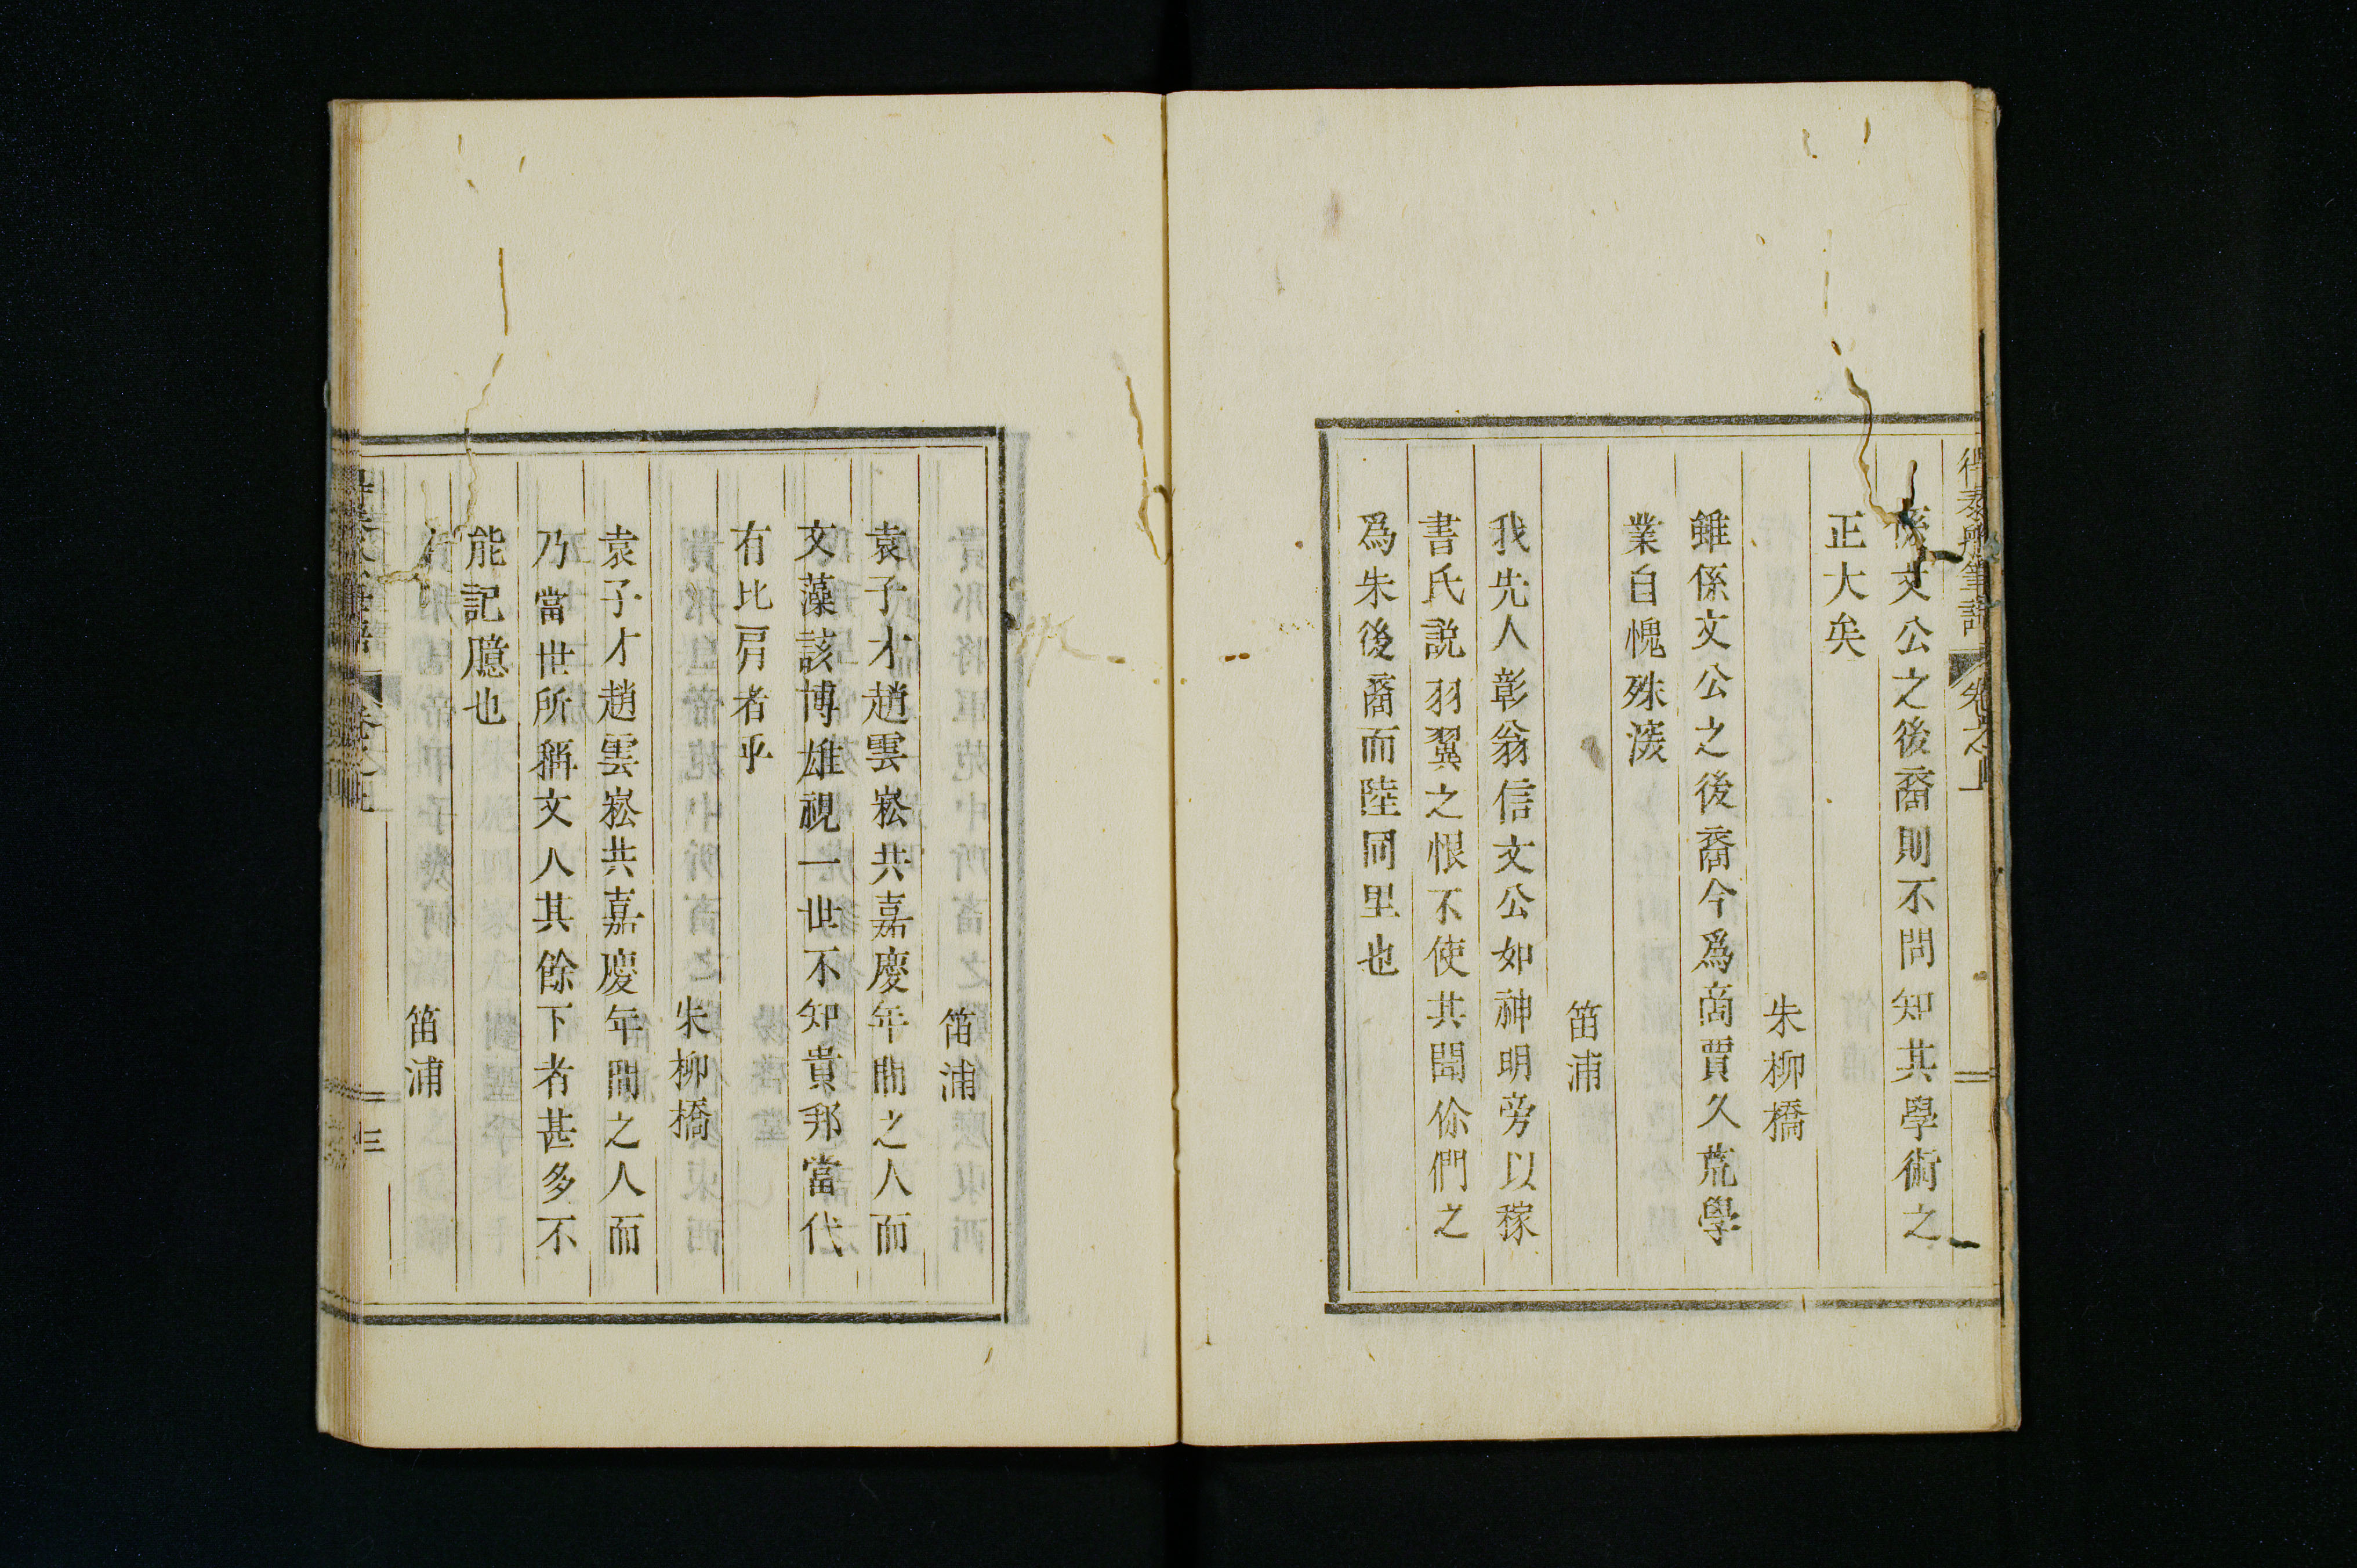 得泰船筆語 卷之上
係文公之後裔則不問知其學術之
正大矣
朱柳橋
雖係文公之後裔今爲商賈久荒學
業自愧殊淺
笛浦
我先人彰翁信文公如神明旁以稼
書氏説羽翼之恨不使其聞你們之
爲朱後裔而陸同里也
笛浦
袁子才趙雲崧共嘉慶年間之人而
文藻該博雄視一世不知貴邦當代
有比肩者乎
朱柳橋
袁子才趙雲崧共嘉慶年間之人而
乃當世所稱文人其餘下者甚多不
能記臆也
笛浦
三